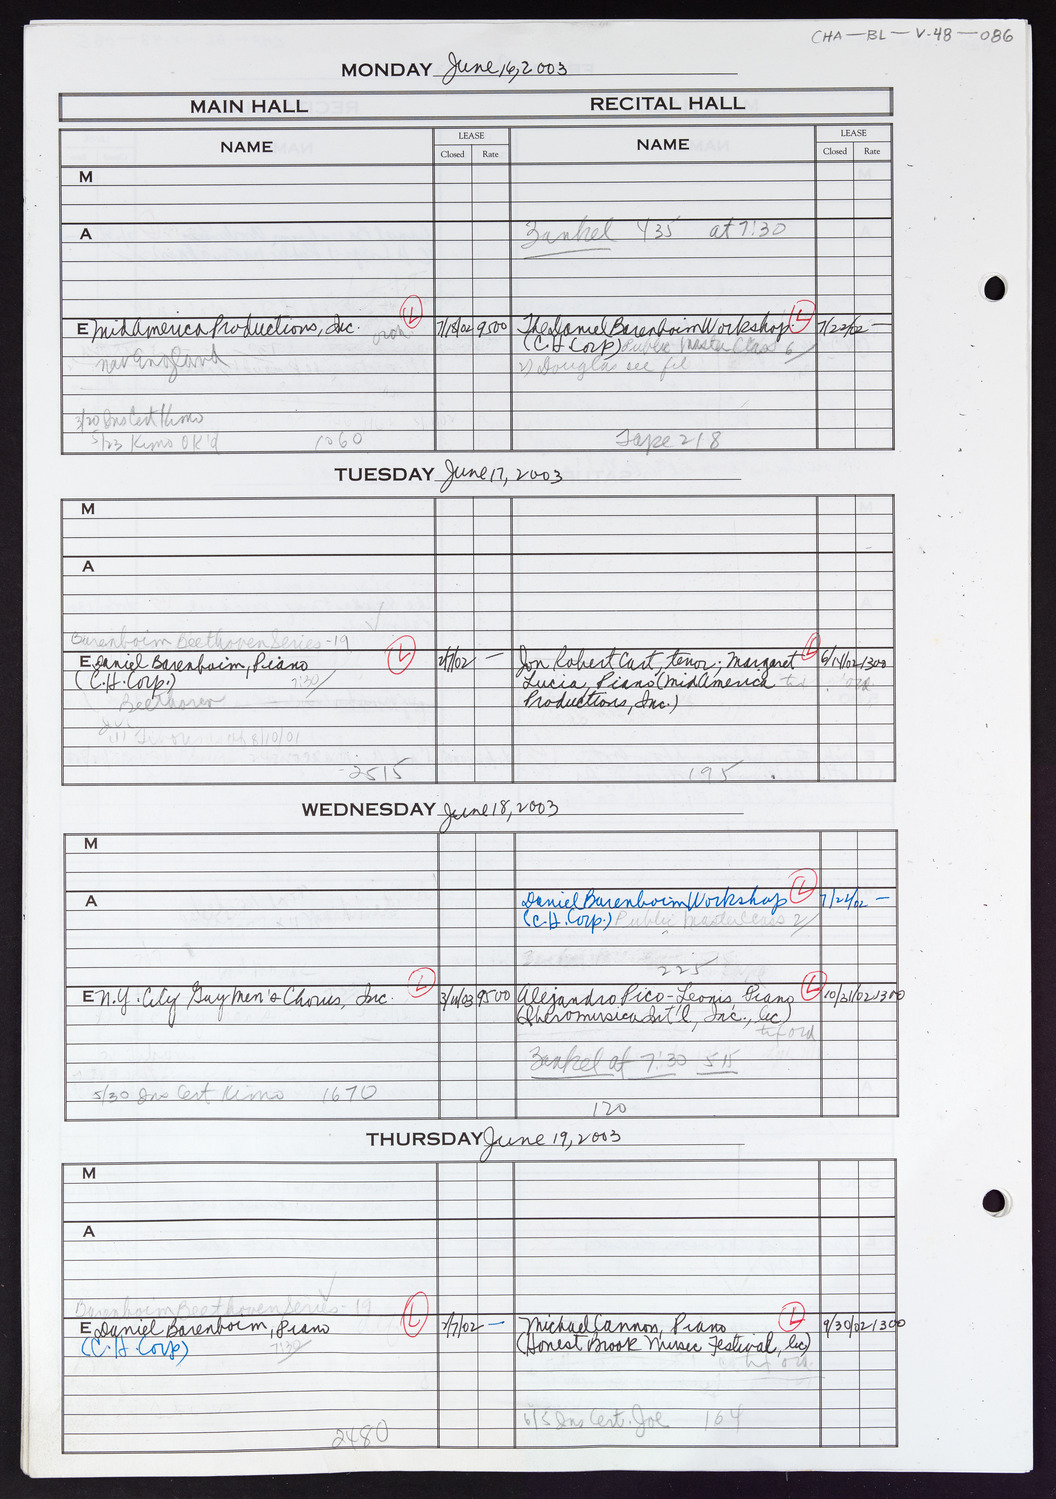 CHA-BL-V-48-086
MONDAY June 16, 2003
MAIN HALL RECITAL HALL
NAME LEASE NAME LEASE
Closed Rate Closed Rate
M
A Zankel 435 at 7:30
E MidAmerica Productions, Inc. L 7/18/02 9500 The Daniel Barenboim Workshop L 7/22/02 —
(C.H. Corp) Public Master Class 6
New England 2) Douglas see
3/20 Ins Cert Kimo
5/23 Kimo OK'd 1060 Tape 218
TUESDAY June 17, 2003
M
A
Barenboim Beethoven Series - 19
E Daniel Barenboim, Piano L 2/7/02 — Jon Robert Cart, tenor; Margaret L 6/14/02 1300
(C.H. Corp.) 7:30 Lucia, Piano (MidAmerica
Beethoven Productions, Inc.)
8/10/01
2515 195
WEDNESDAY June 18, 2003
M
A Daniel Barenboim Workshop L 7/22/02 —
(C.H. Corp.) Public Master Class 2
225
E N.Y. City Gay Men's Chorus, Inc. L 3/11/03 9500 Alejandro Pico-Leonis, Piano L 10/21/02 1300
Int'l, Inc., lic)
Zankel at 7:30 515
5/30 Ins Cert Kimo 1670
120
THURSDAY June 19, 2003
M
A
Barenboim Beethoven Series - 19
E Daniel Barenboim, Piano L 2/7/02 — Michael Cannon, Piano L 9/30/02 1300
(C.H. Corp) 7:30 (Honest Brook Music Festival, lic)
6/5 Ins Cert. Joe 164
2480